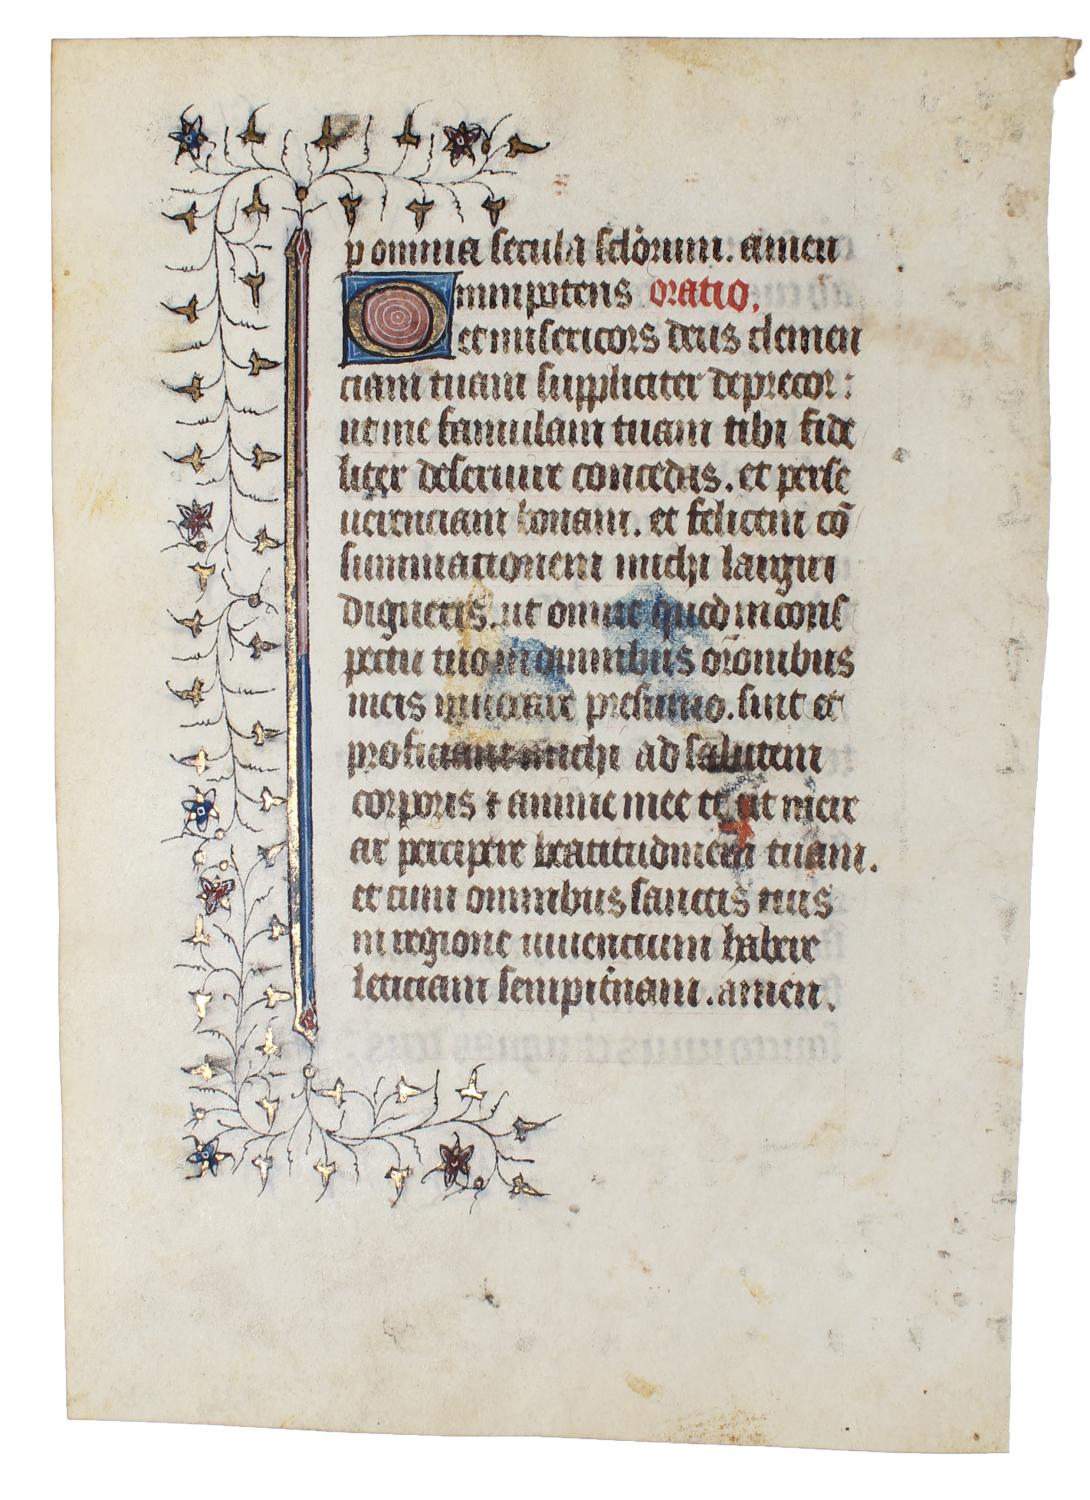 p omnia secula sclorum. amen
Omnipotens oratio.
et misericors deus clemen
ciam tuam suppliciter deprecor:
ut me famulam tuam tibi fide
liter deseruire concedas. et perse
uerenciam bonam. et felicem co᷑
summationem michi largiri
digneris. ut omne quod in cons
pectu tuo in omnibus or̄onibus
meis inuocare presumo. sint et
proficiant michi ad salutem
corporis ⁊ anime mee et ut mere
ar percipere beatitudinem tuam.
et cum omnibus sanctis tuis
in regione uiuencium habere
leticiam sempit̾nam. amen.